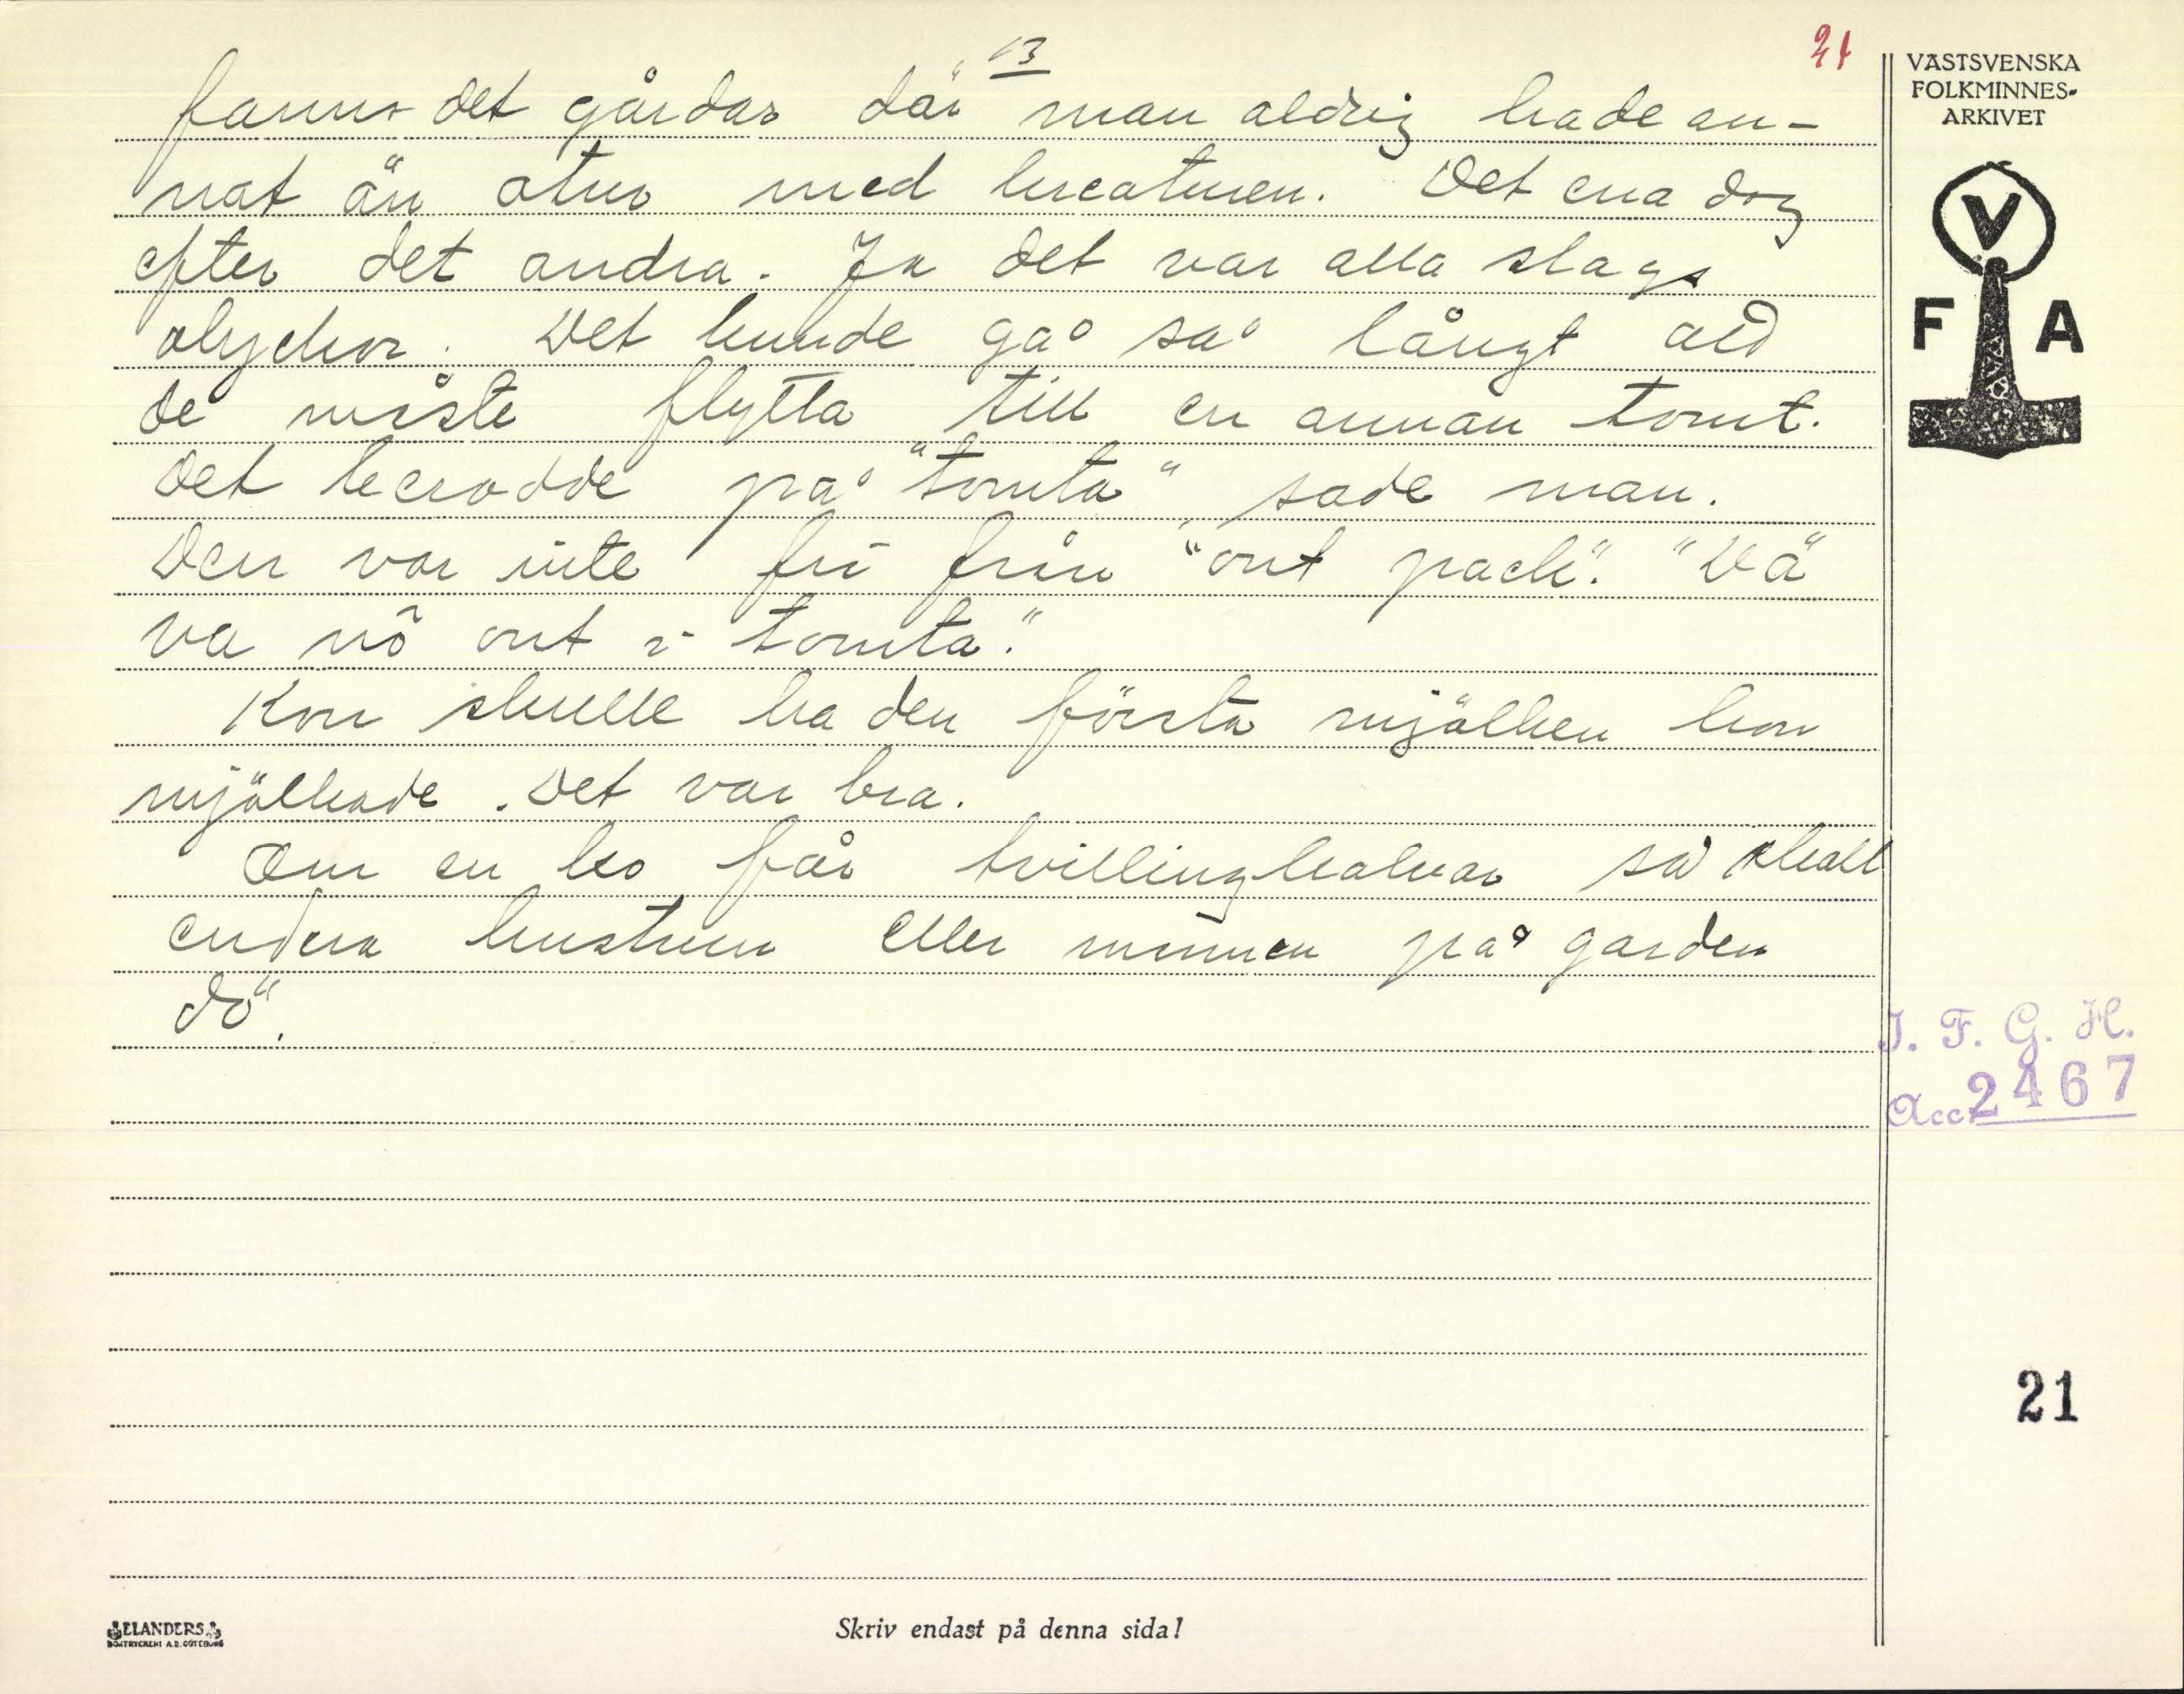 13
21
fanns det gårdar där man aldrig hade an-
nat än otur med kreaturen. Det ena dog
efter det andra. Ja det var alla slags
olyckor. Det kunde gå så långt att
de måste flytta till en annan tomt.
Det berodde på "tomta" sade man.
Den var inte fri från "ont pack". "Dä
va nô ont i tomta."
Kon skulle ha den första mjölken hon
mjölkade. Det var bra.
Om en ko får tvillingkalvar så skall
endera hustrun eller mannen på gården
dö.
VÄSTSVENSKA
FOLKMINNES-
ARKIVET
V
F A
I. F. G. H.
Acc. 2467
21
ELANDERS
BOKTRYCKERI A.B. GÖTEBORG
Skriv endast på denna sida!